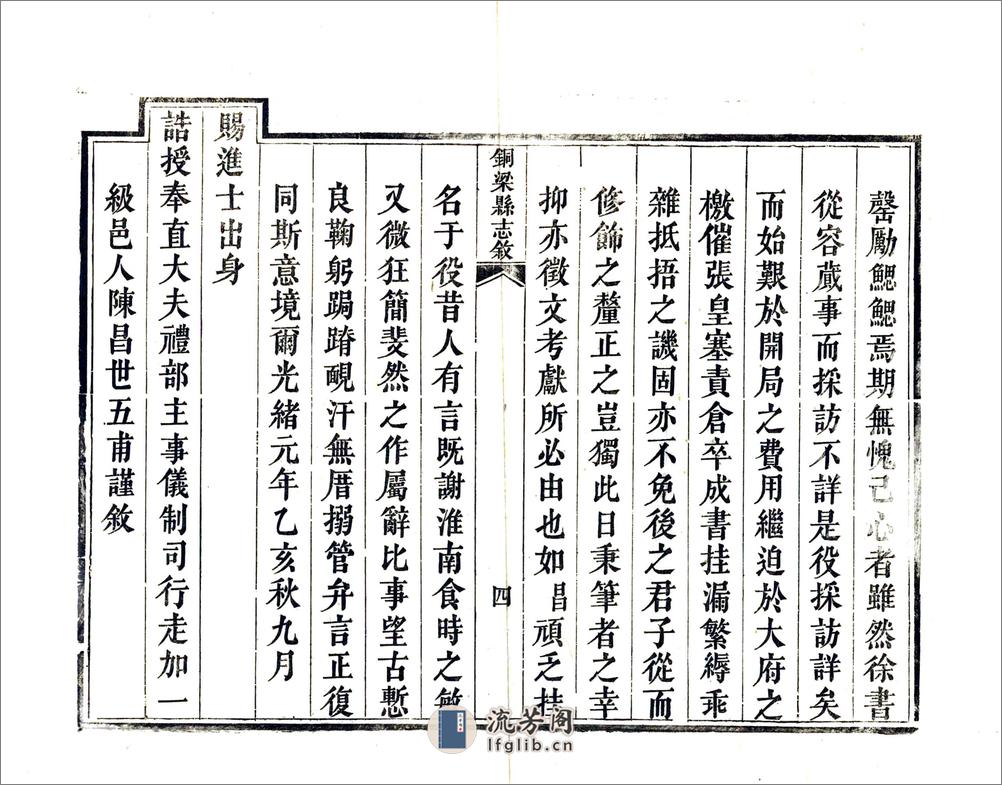 罄勵鰓鰓焉期無愧己心者雖然徐書
從容蕆事而採訪不詳是役採訪詳矣
而始艱於開局之費用繼迫於大府之
檄催張皇塞責倉卒成書挂漏繁縟乖
雜抵捂之譏固亦不免後之君子從而
修飾之釐正之豈獨此日秉筆者之幸
抑亦徵文考獻所必由也如昌頑乏挂
銅梁縣志敘
四
名于役昔人有言既謝淮南食時之敏
又微狂簡斐然之作屬辭比事望古慙
良鞠躬跼蹐靦汗無厝搦管弁言正復
同斯意境爾光緒元年乙亥秋九月
賜進士出身
誥授奉直大夫禮部主事儀制司行走加一
級邑人陳昌世五甫謹敘
流芳阁
lfglib.cn